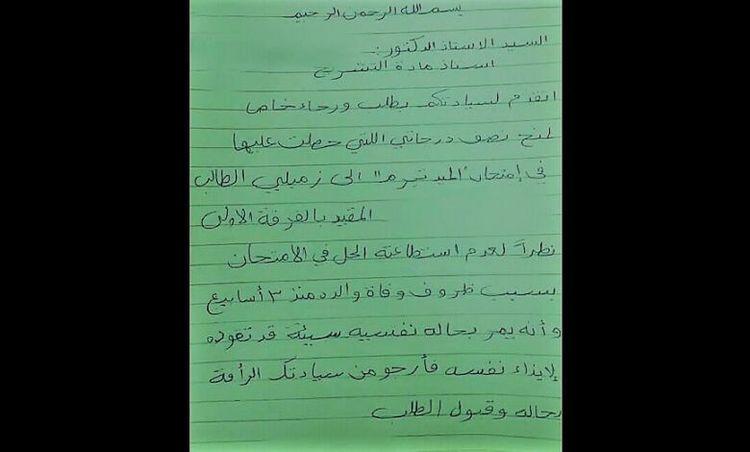 بسم الله الرحمن الرحيم
السيد الاستاذ الدكتور :
استاذ مادة التشريح
اتقدم لسيادتكم بطلب ورجاء خاص
لمنح نصف درجاتي اللتي حصلت عليها
في إمتحان "الميدتيرم" الى زميلي الطالب
المقيد بالفرقة الاولى
نظراً لعدم استطاعته الحل في الامتحان
بسبب ظروف وفاة والده منذ ٣ أسابيع
وأنه يمر بحاله نفسيه سيئة قد تقوده
لإيذاء نفسه فأرجو من سيادتك الرأفة
بحاله وقبول الطلب